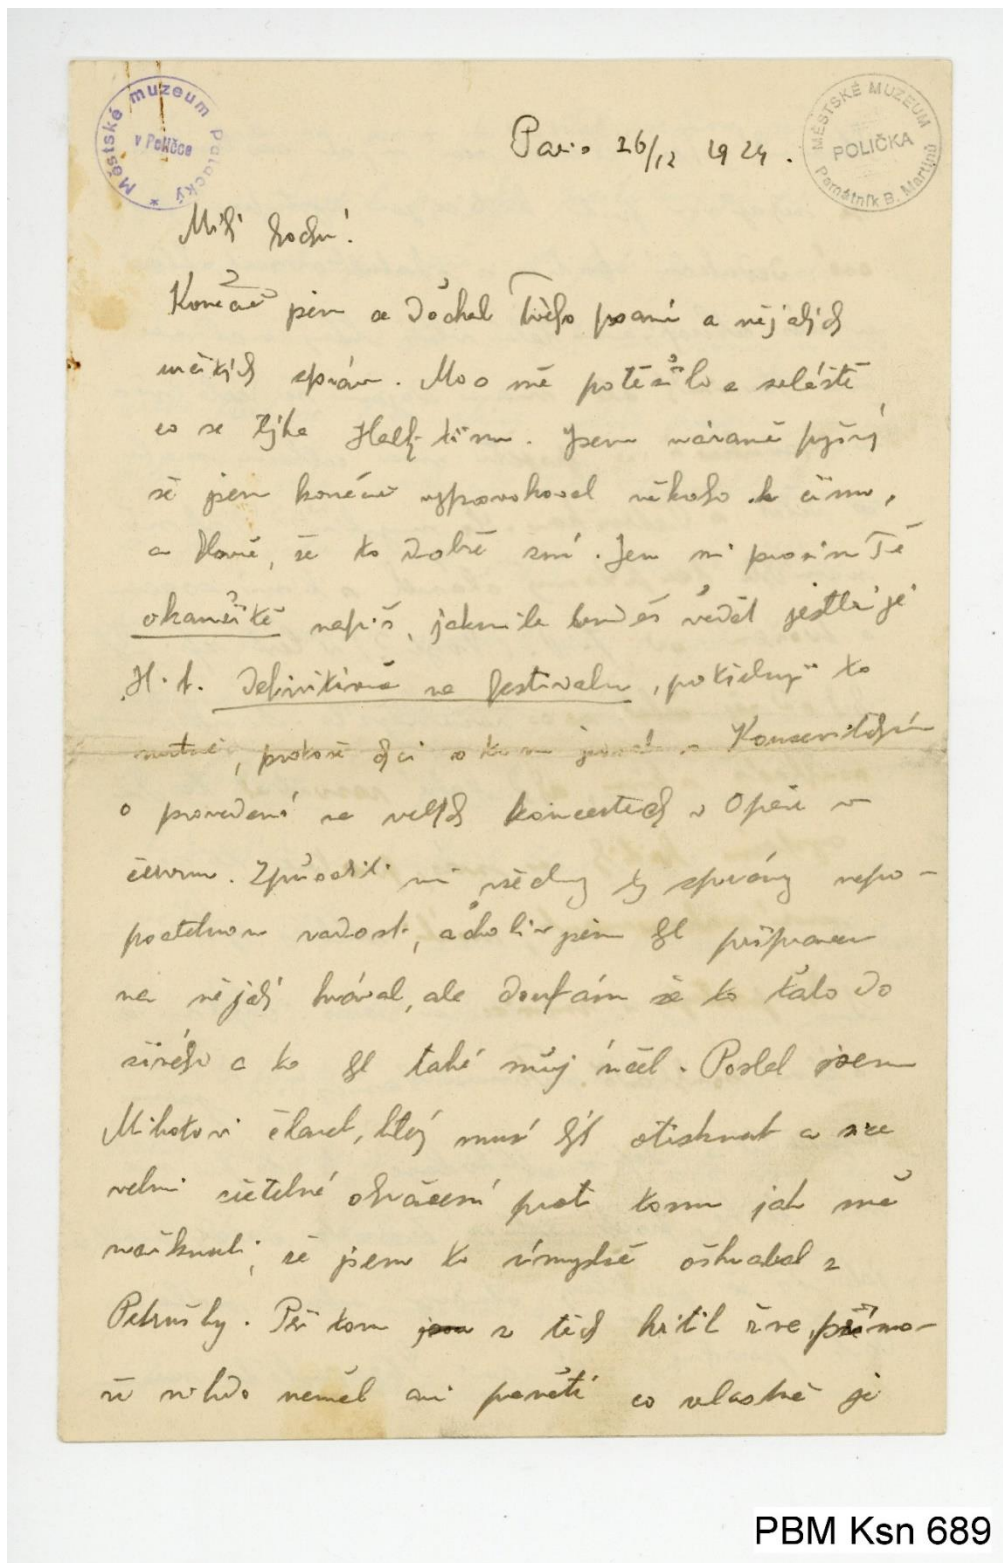 Městské muzeum Palackých v Poličce
MĚSTSKÉ MUZEUM POLIČKA Památník B. Martinů
Paris 26/12 1924.
Milý hochu!
Konečně jsem se dočkal Tvého psaní a nějakých
určitých zpráv. Moc mě potěšilo a zvláště
co se týká Half-timu. Jsem náramně pyšný
že jsem konečně vyprovokoval někoho k činu,
a hlavně, že to dobře zní. Jen mi prosím Tě
okamžitě napiš, jakmile budeš vědět jestli je
H. t. definitivně na festivalu, potřebuji to
nutně, protože chci o tom jednat s
o provedení na velkých koncertech v Opeře v
červnu. Způsobily mi všechny ty zprávy nepo-
psatelnou radost, ačkoliv jsem byl připraven
na nějaký kravál, ale doufám že to ťalo do
živého a to byl také můj účel. Poslal jsem
Mihotovi článek, který musí být otisknut a sice
velmi zřetelné ohrazení proti tomu jak mě
nařknuli, že jsem to úmyslně oškrabal z
Petrušky. Při tom z těch kritik řve přímo
že nikdo neměl ani ponětí co vlastně je
PBM Ksn 689